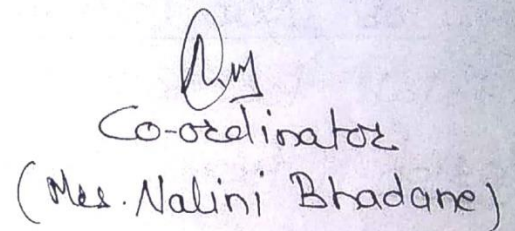 Co-ordinator
(Mrs. Nalini Bhadane)